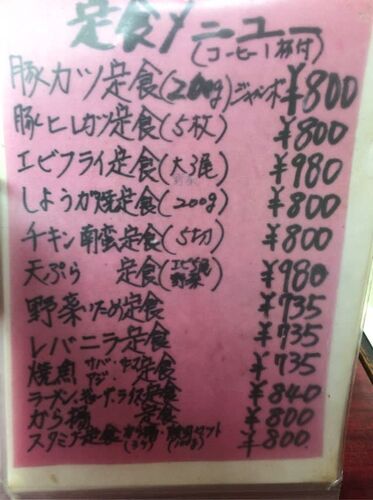 定食メニュー
(コーヒー1杯付)
豚カツ定食(200g)ジャンボ ¥800
豚ヒレカツ定食(5枚) ¥800
エビフライ定食(大3尾) ¥980
しょうが焼定食(200g) ¥800
チキン南蛮定食(5切) ¥800
天ぷら 定食(エビ3尾 野菜) ¥980
野菜いため定食 ¥735
レバニラ定食 ¥735
焼魚 サバ・サンマ アジ 定食 ¥735
ラーメン、ギョーザ、ライス定食 ¥840
から揚 定食 ¥800
スタミナ定食 ¥800